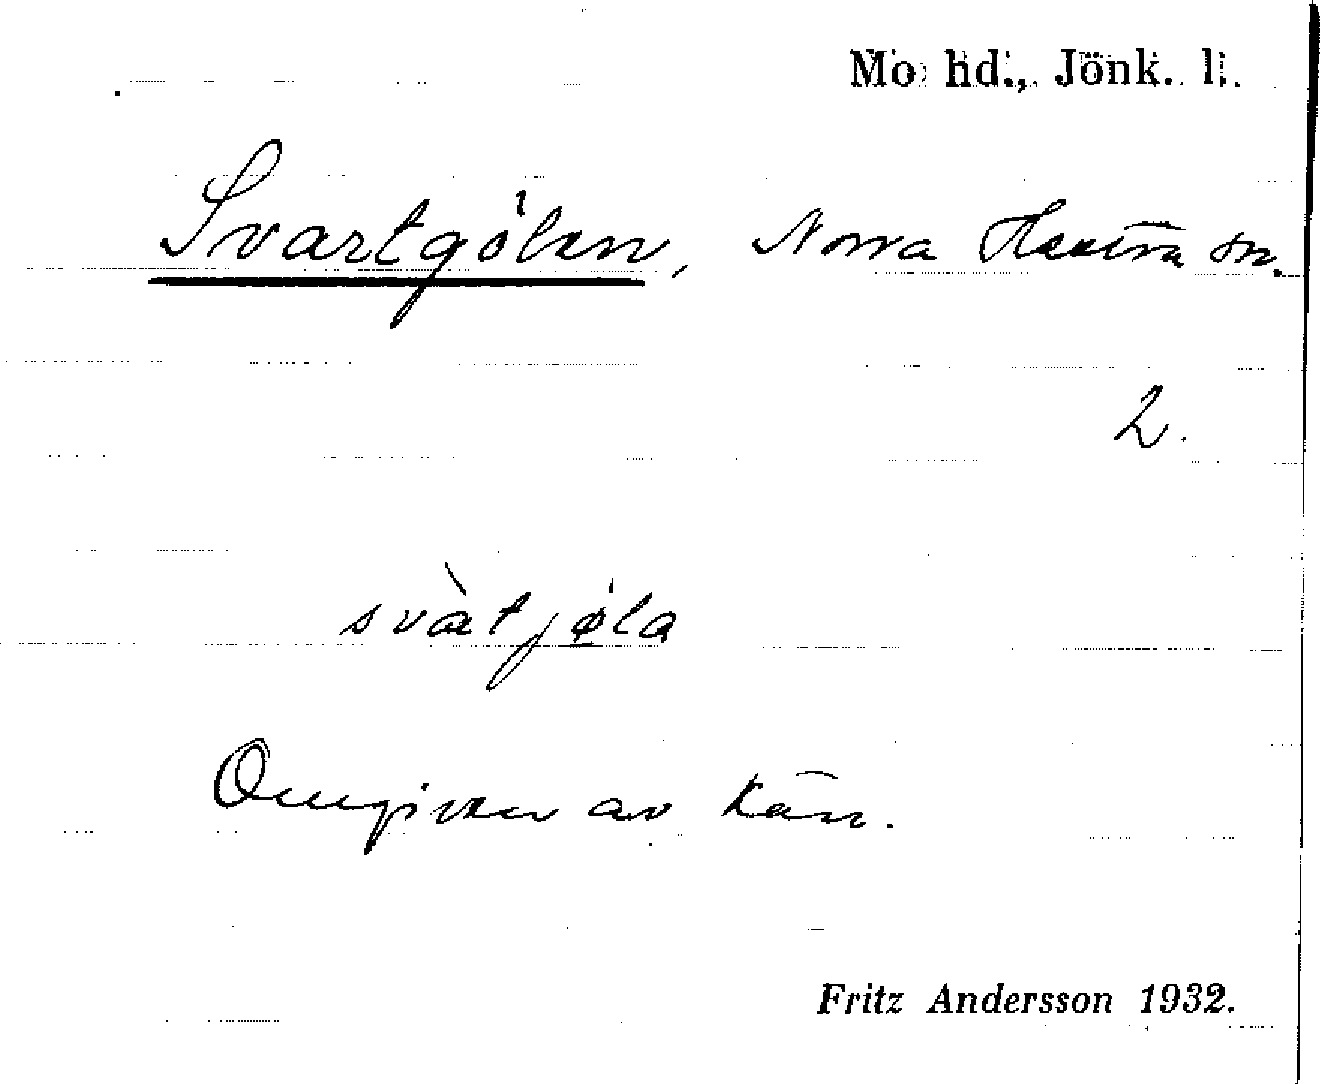 Mo hd., Jönk. l.
Svartgölen, Norra Hestra sn.
2.
svàtjøla
Omgiven av kärr.
Fritz Andersson 1932.